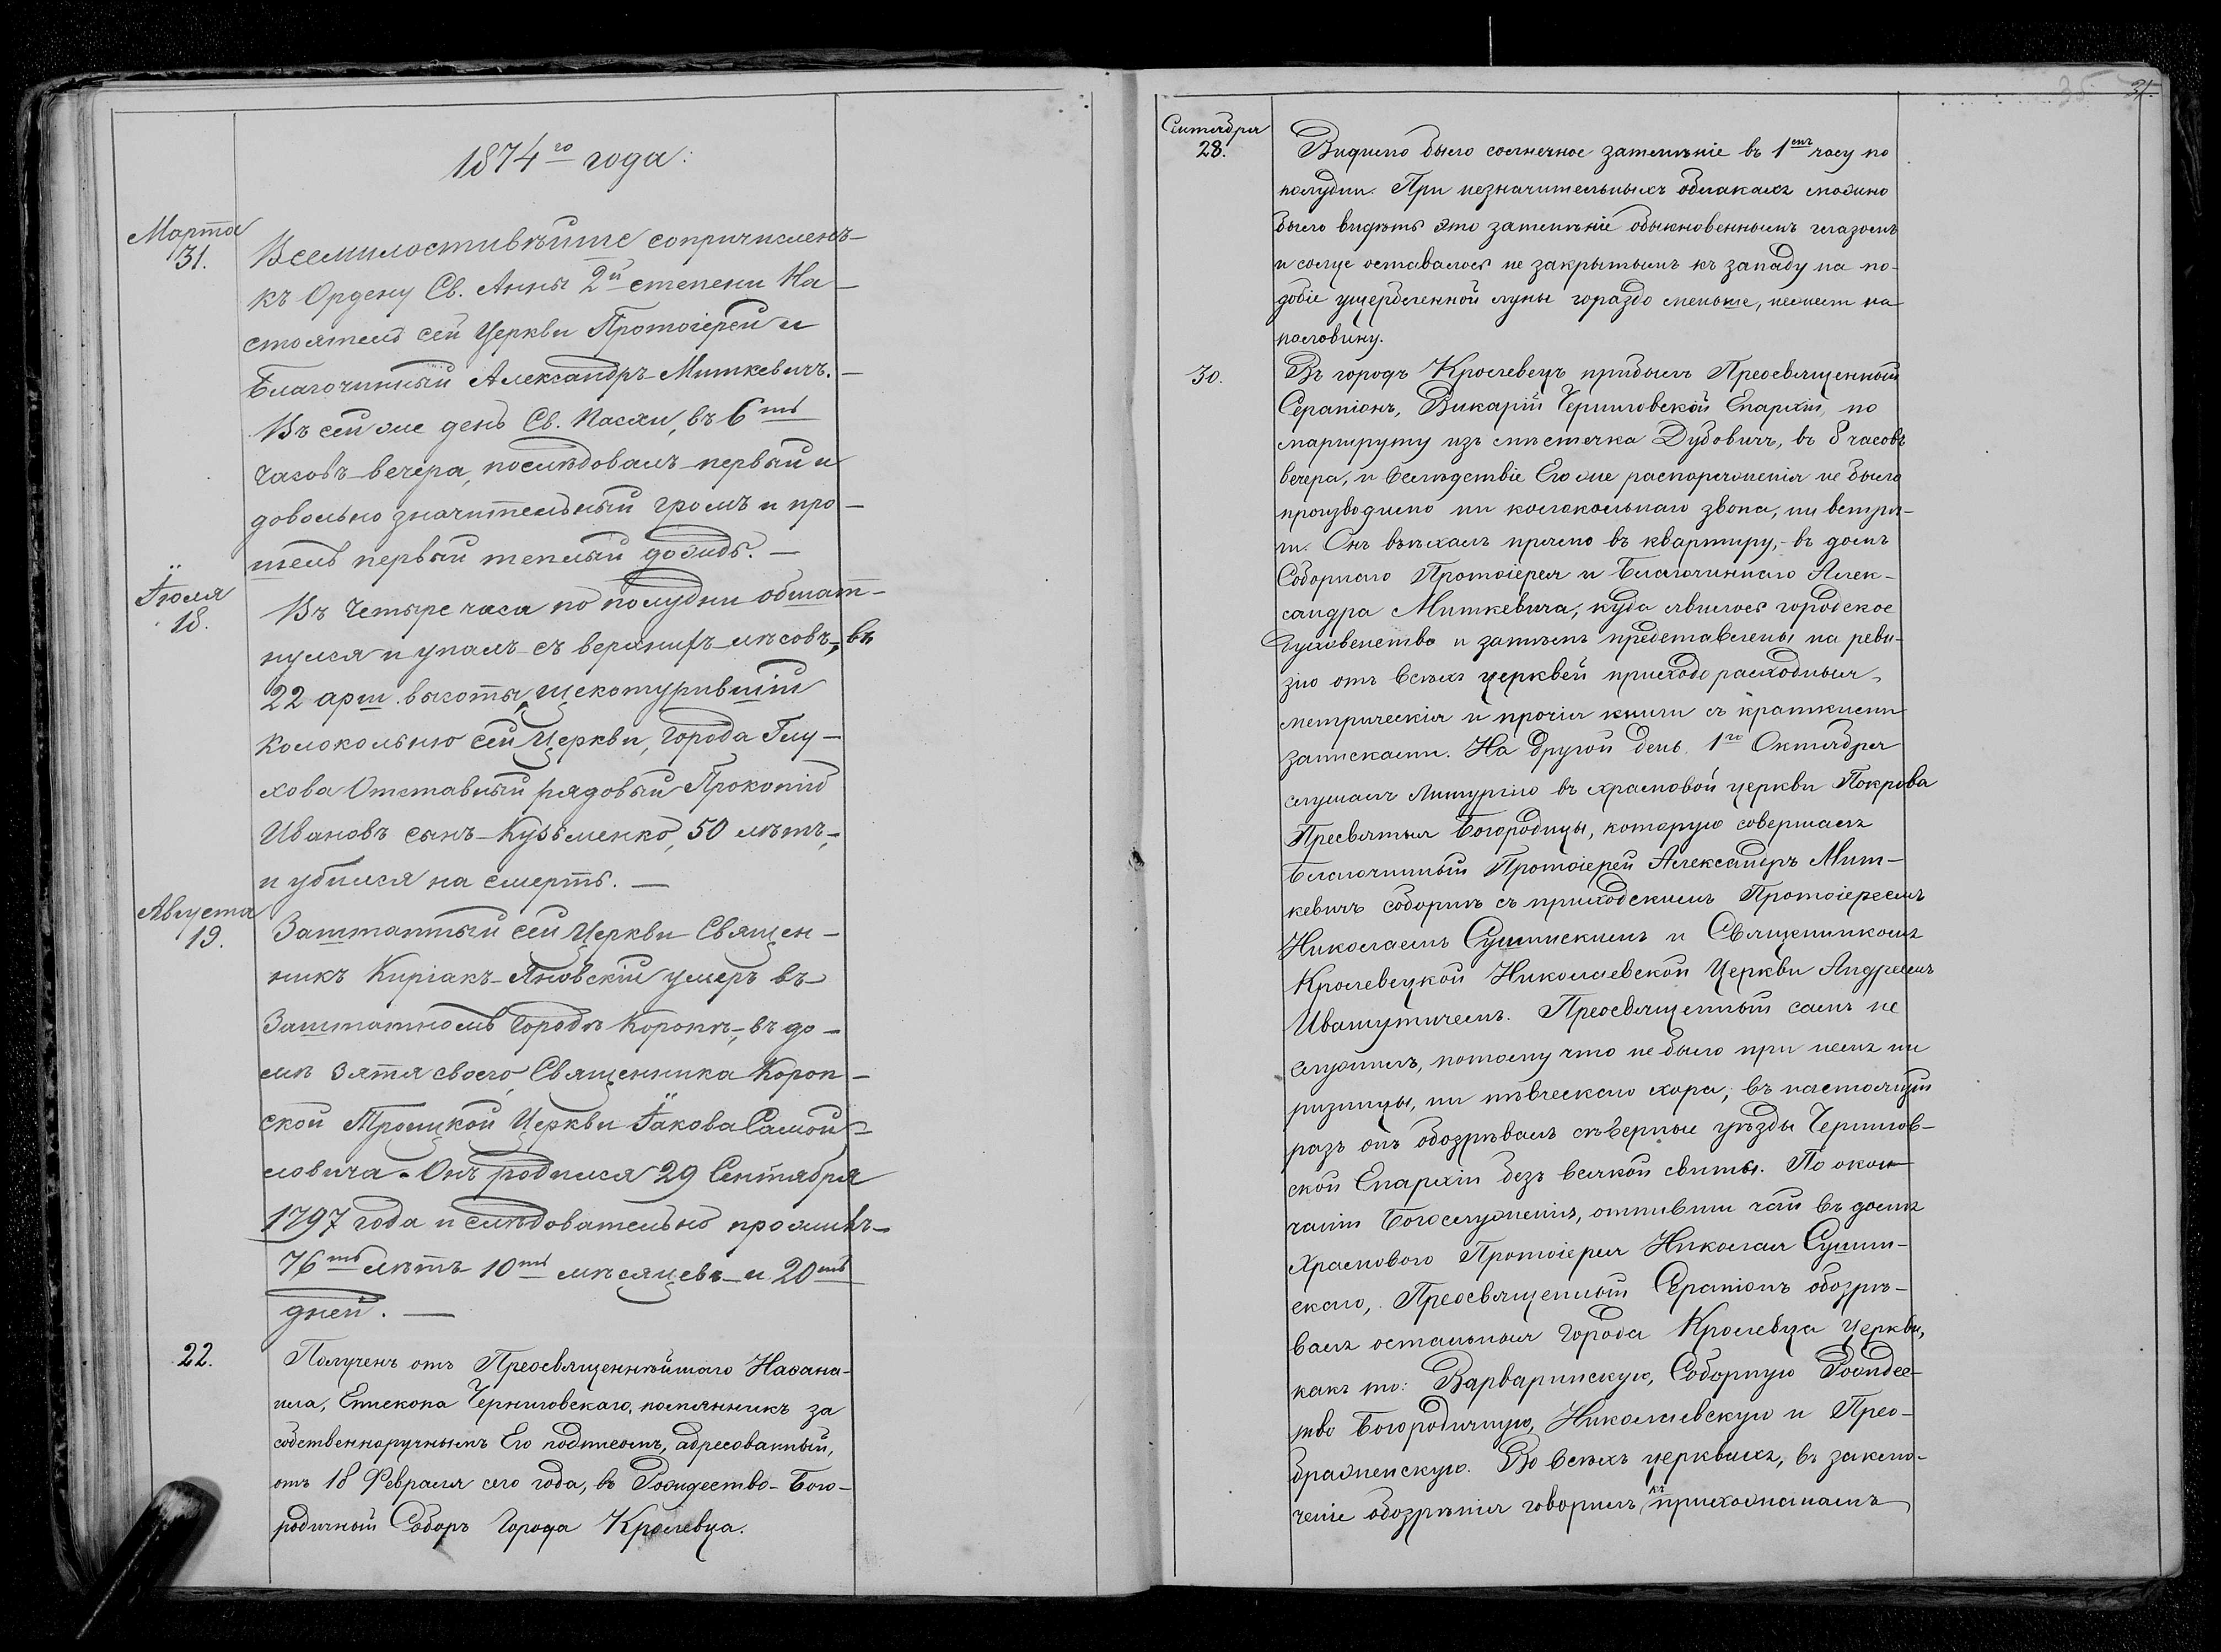 1874го года:
Марта
31.
Всемилостивѣйше сопричисленъ
къ Ордену Св. Анны 2й степени На-
стоятель сей Церкви Протоіерей и
Благочинный Александръ Миткевичъ. —
Въ сей же день Св. Пасхи, въ 6ть
часовъ вечера, послѣдовалъ первый и
довольно значительный громъ и про-
шелъ первый теплый дождь. —
Іюля
18.
Въ Четыре часа по полудни обшат-
нулся и упалъ съ верхнихъ лѣсовъ, въ
22 арш. высоты, щекотурившій
колокольню сей Церкви, Города Глу-
хова Отставный рядовый Прокопій
Ивановъ сынъ Кузьменко, 50 лѣтъ,
и убился на смерть. —
Августа
19.
Заштатный сей Церкви Священ-
никъ Киріакъ Яновскій умеръ въ
Заштатномъ Городѣ Коропѣ, въ до-
мѣ Зятя своего, Священника Короп-
ской Троицкой Церкви Іакова Самой-
ловича. Онъ родился 29 Сентября
1797 года и слѣдовательно прожилъ
76ть лѣтъ 10ть мѣсяцевъ и 20ть
дней. —
22.
Полученъ отъ Преосвященнѣйшаго Наѳана-
ила, Епископа Черниговскаго, помянникъ за
собственноручнымъ Его подписомъ, адресованный,
отъ 18 Февраля сего года, въ Рождество-Бого-
родичный Соборъ Города Кролевца.
35 31.
Сентября
28.
Видимо было солнечное затмѣніе въ 1мъ часу по
полудни. При незначительныхъ облакахъ можно
было видѣть это затмѣніе обыкновеннымъ глазомъ
и солнце оставалось не закрытымъ къ западу на по-
добіе ущербленной луны гораздо меньше, нежели на
половину.
30.
Въ городъ Кролевецъ прибылъ Преосвященный
Серапіонъ, Викарій Черниговской Епархіи, по
маршруту изъ мѣстечка Дубовичъ, въ 8 часовъ
вечера, и вслѣдствіе Его же распоряженія не было
производимо ни колокольнаго звона, ни встрѣ-
чи. Онъ въѣхалъ прямо въ квартиру, - въ домъ
Соборнаго Протоіерея и Благочиннаго Алек-
сандра Миткевича, куда явилось городское
духовенство и затѣмъ представлены на реви-
зію отъ всѣхъ церквей приходо расходныя,
метрическія и прочія книги съ краткими
записками. На другой день, 1го Октября
слушалъ Литургію въ храмовой церкви Покрова
Пресвятыя Богородицы, которую совершалъ
Благочинный Протоіерей Александръ Мит-
кевичъ соборнѣ съ приходскимъ Протоіереемъ
Николаемъ Сушинскимъ и Священникомъ
Кролевецкой Николаевской Церкви Андреемъ
Ивашутичемъ. Преосвященный самъ не
служилъ, потому что не было при немъ ни
ризницы, ни пѣвческаго хора; въ настоящій
разъ онъ обозрѣвалъ сѣверные уѣзды Чернигов-
ской Епархіи безъ всякой свиты. По окон-
чаніи Богослуженія, отпивши чай въ домѣ
Храмоваго Протоіерея Николая Сушин-
скаго, Преосвященный Серапіонъ обозрѣ-
валъ остальныя города Кролевца Церкви,
какъ то: Варваринскую, Соборную Рождес-
тво Богородичную, Николаевскую и Прео-
браженскую. Во всѣхъ церквахъ, въ заклю-
ченіе обозрѣнія говорилъ къ прихожанамъ